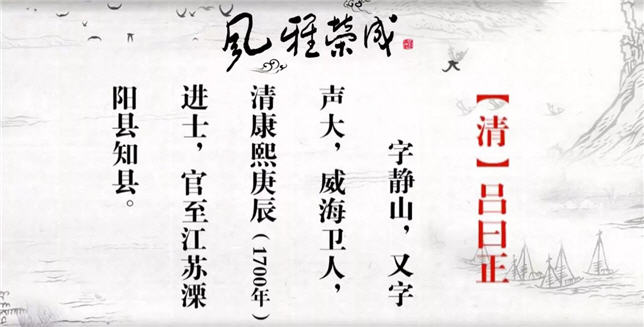 風雅荣成
【清】吕曰正
字静山，又字
声大，威海卫人，
清康熙庚辰（1700年）
进士，官至江苏溧
阳县知县。